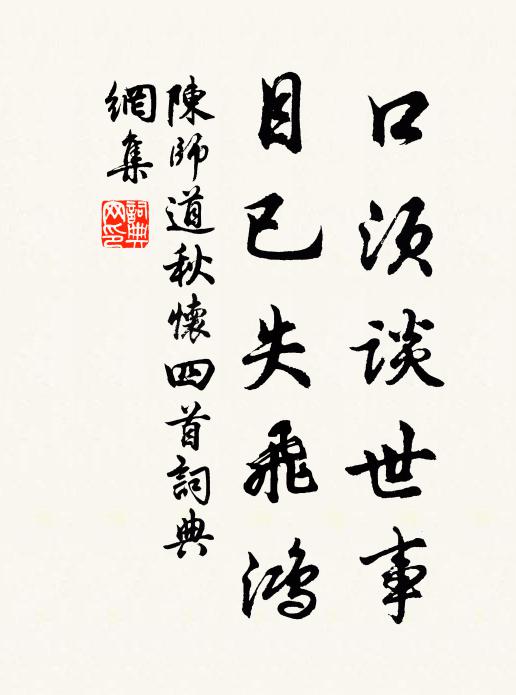 口須談世事
目已失飛鴻
陳師道秋懷四首詞典
網集
詞典
网印